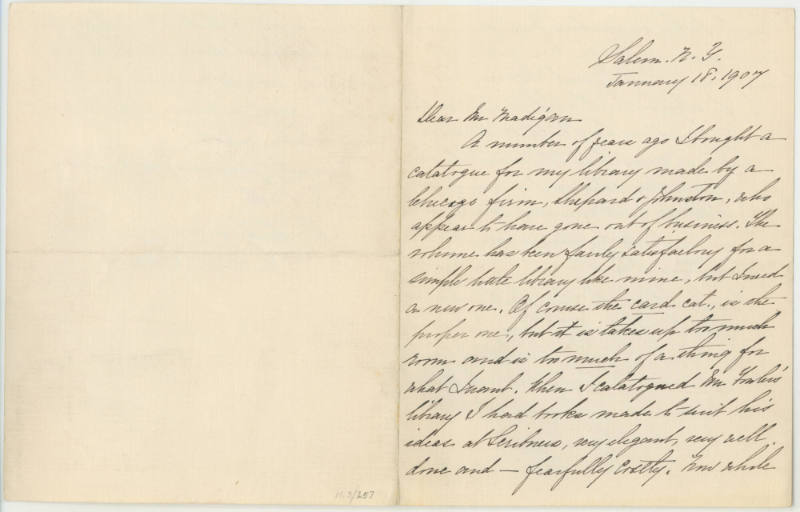 Salem. N. Y.
January 18. 1907
Dear Mr Madigan
A number of years ago I bought a
catalogue for my library made by a
Chicago firm, Shepard & Johnston, who
appear to have gone out of business. The
volume has been fairly satisfactory for a
simple little library like mine, but I need
a new one. Of course the card cat., is the
proper one, but it is takes up too much
room and is too much of a thing for
what I want. When I catalogued Mr
library I had books made to suit his
ideas at Scribners, very elegant, very well
done and — fearfully costly. The whole
11.3/257